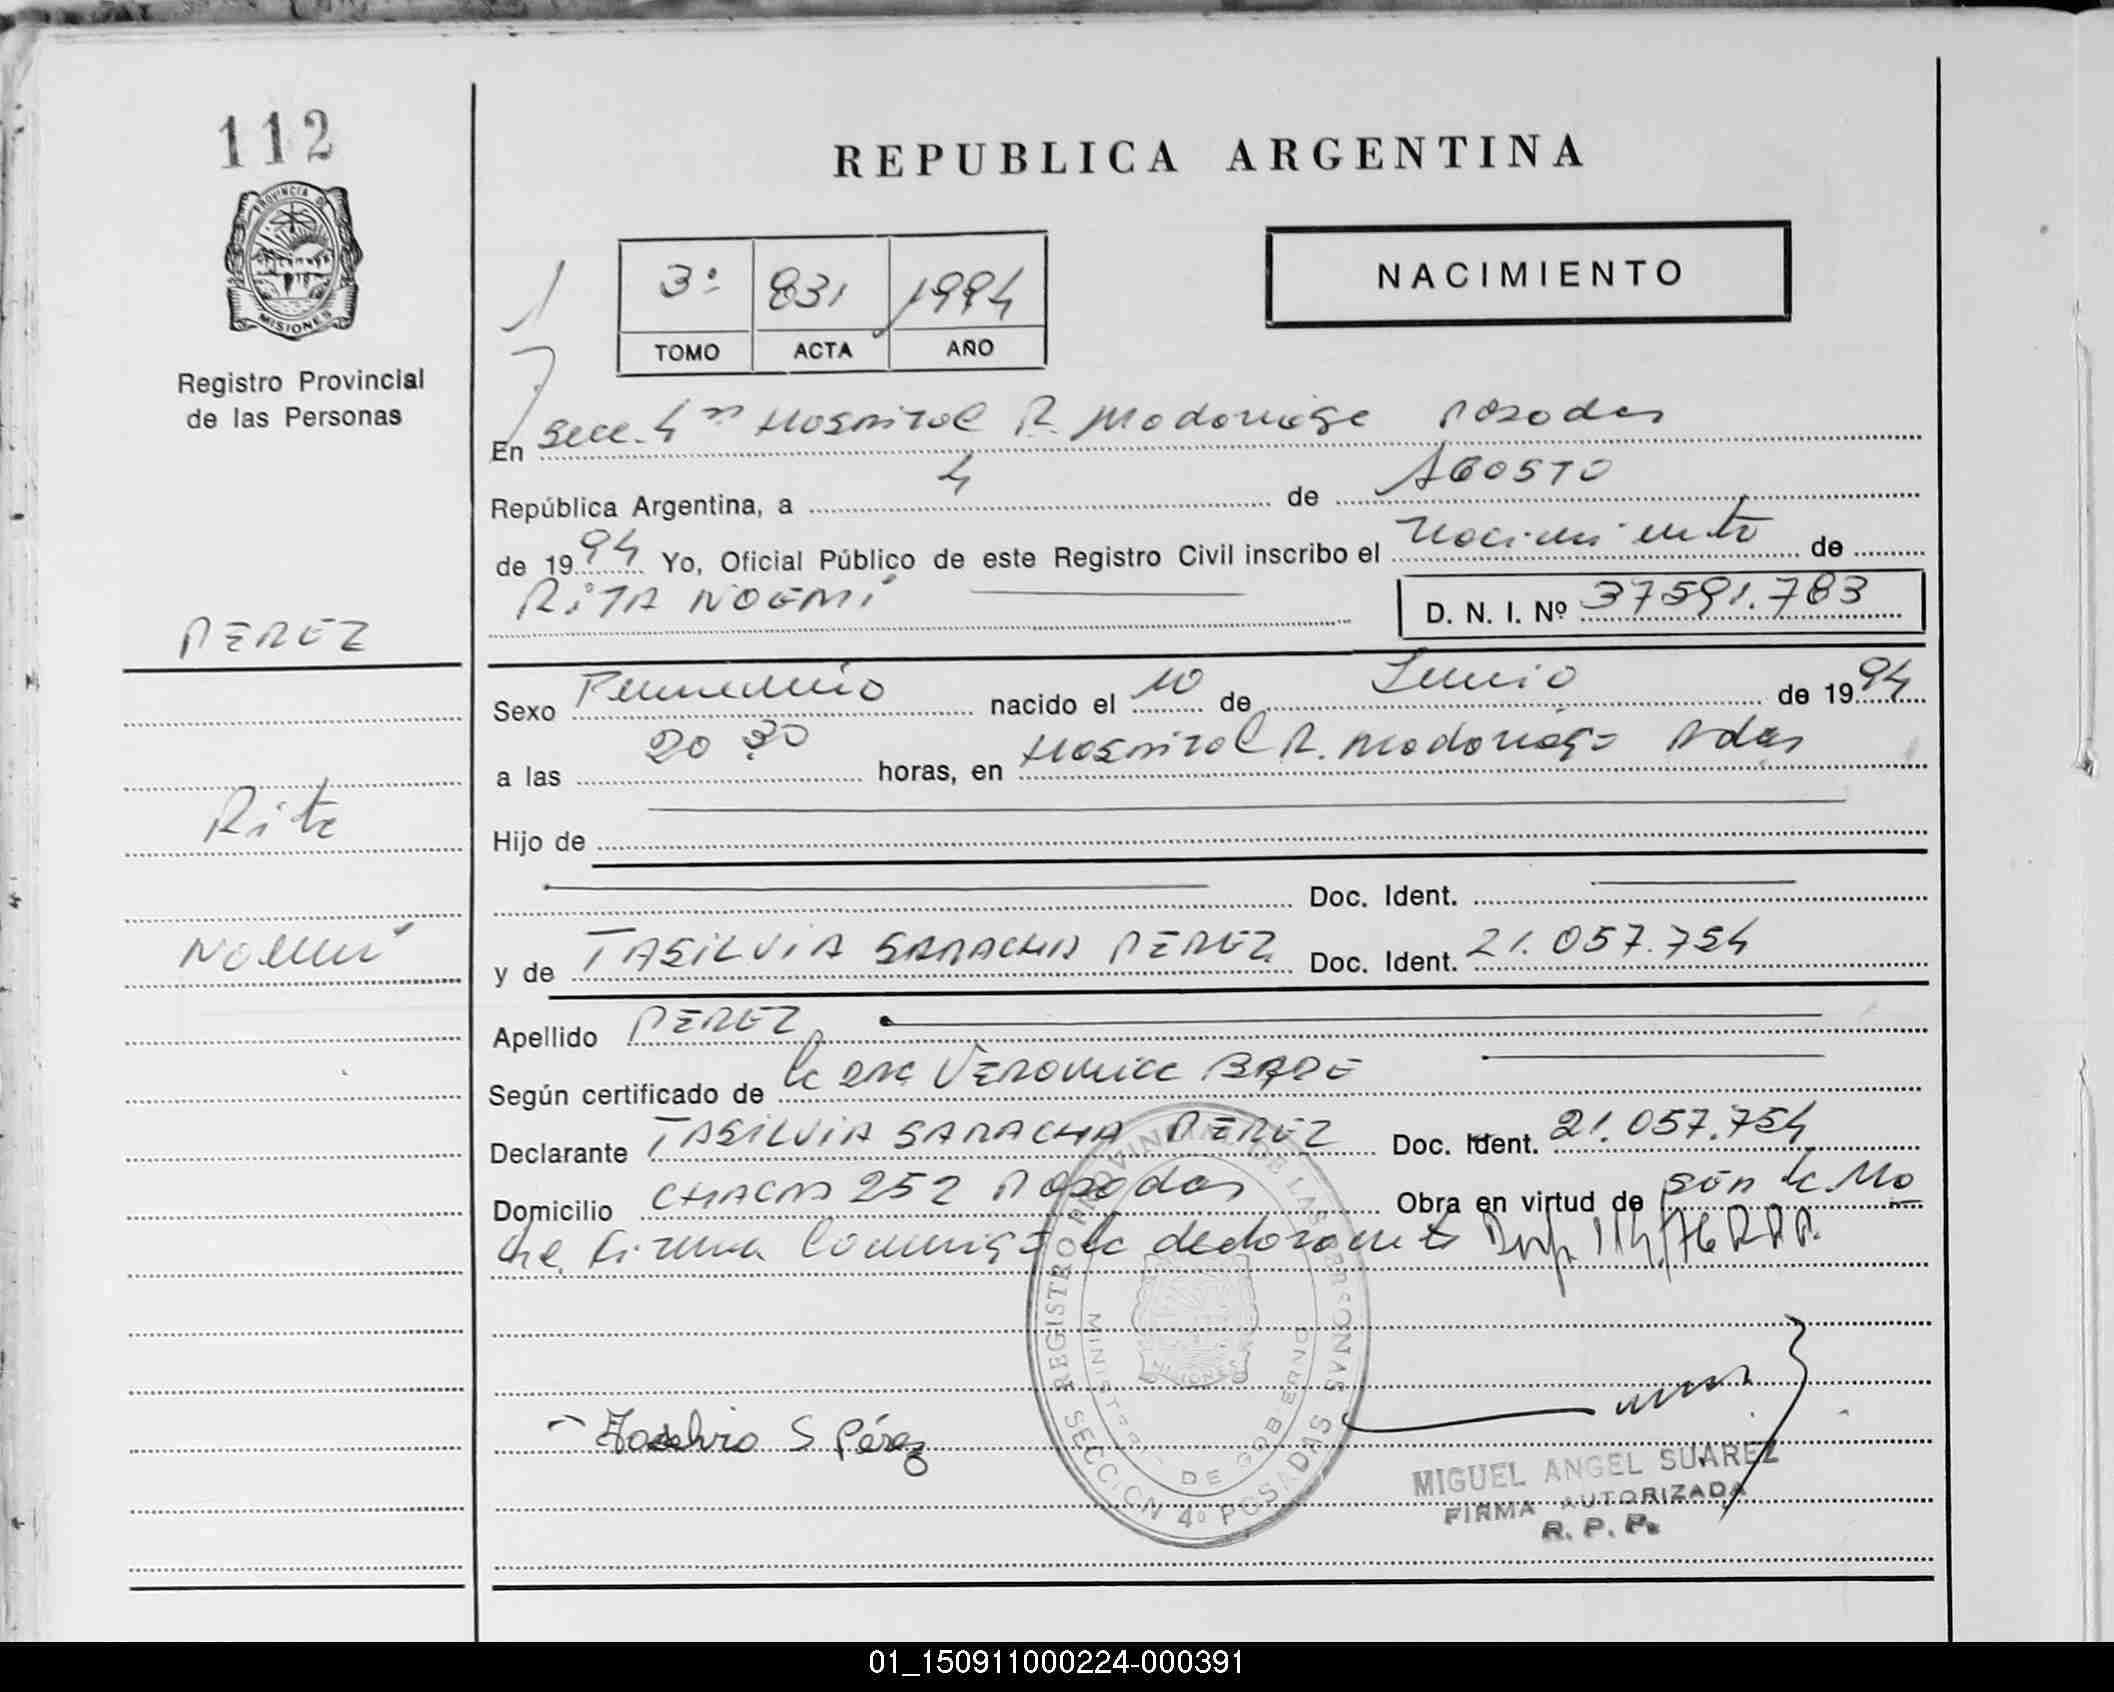 112
REPUBLICA ARGENTINA
PROVINCIA D MISIONES
Registro Provincial
de las Personas
3º 831 1994
TOMO ACTA AÑO
NACIMIENTO
En Secc. 4ta Hospital R. Madariaga Posadas
República Argentina, a 4 de AGOSTO
de 1994 Yo, Oficial Público de este Registro Civil inscribo el Nacimiento de
RITA NOEMÍ D. N. I. Nº 37591.783
PEREZ
Sexo Femenino nacido el 10 de Junio de 1994
a las 20 30 horas, en Hospital R. Madariaga Pdas
Rita
Hijo de
Doc. Ident.
Noemí
y de TASILVIA SARACHA PEREZ Doc. Ident. 21.057.754
Apellido PEREZ
Según certificado de la Dra VERONICA
Declarante TASILVIA SARACHA PEREZ Doc. Ident. 21.057.754
Domicilio CHACRA 252 Posadas Obra en virtud de ser la Ma
dre. Firma Conmigo la declarante Disp 114/76 R.P.P.
REGISTRO PROVINCIAL DE LAS PERSONAS
MINISTERIO DE GOBIERNO
MISIONES
SECCION 4º POSADAS
Tasilvia S Pérez
MIGUEL ANGEL SUAREZ
FIRMA AUTORIZADA
R. P. P.
01_150911000224-000391